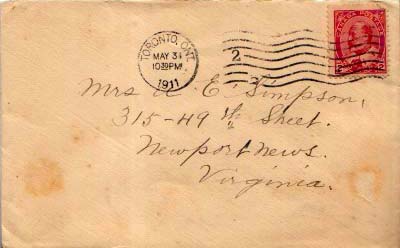 TORONTO, ONT.
MAY 31
10 30 PM
1911
2
CANADA POSTAGE
2
Mrs A E Simpson,
315-49th Street.
Newport News.
Virginia.